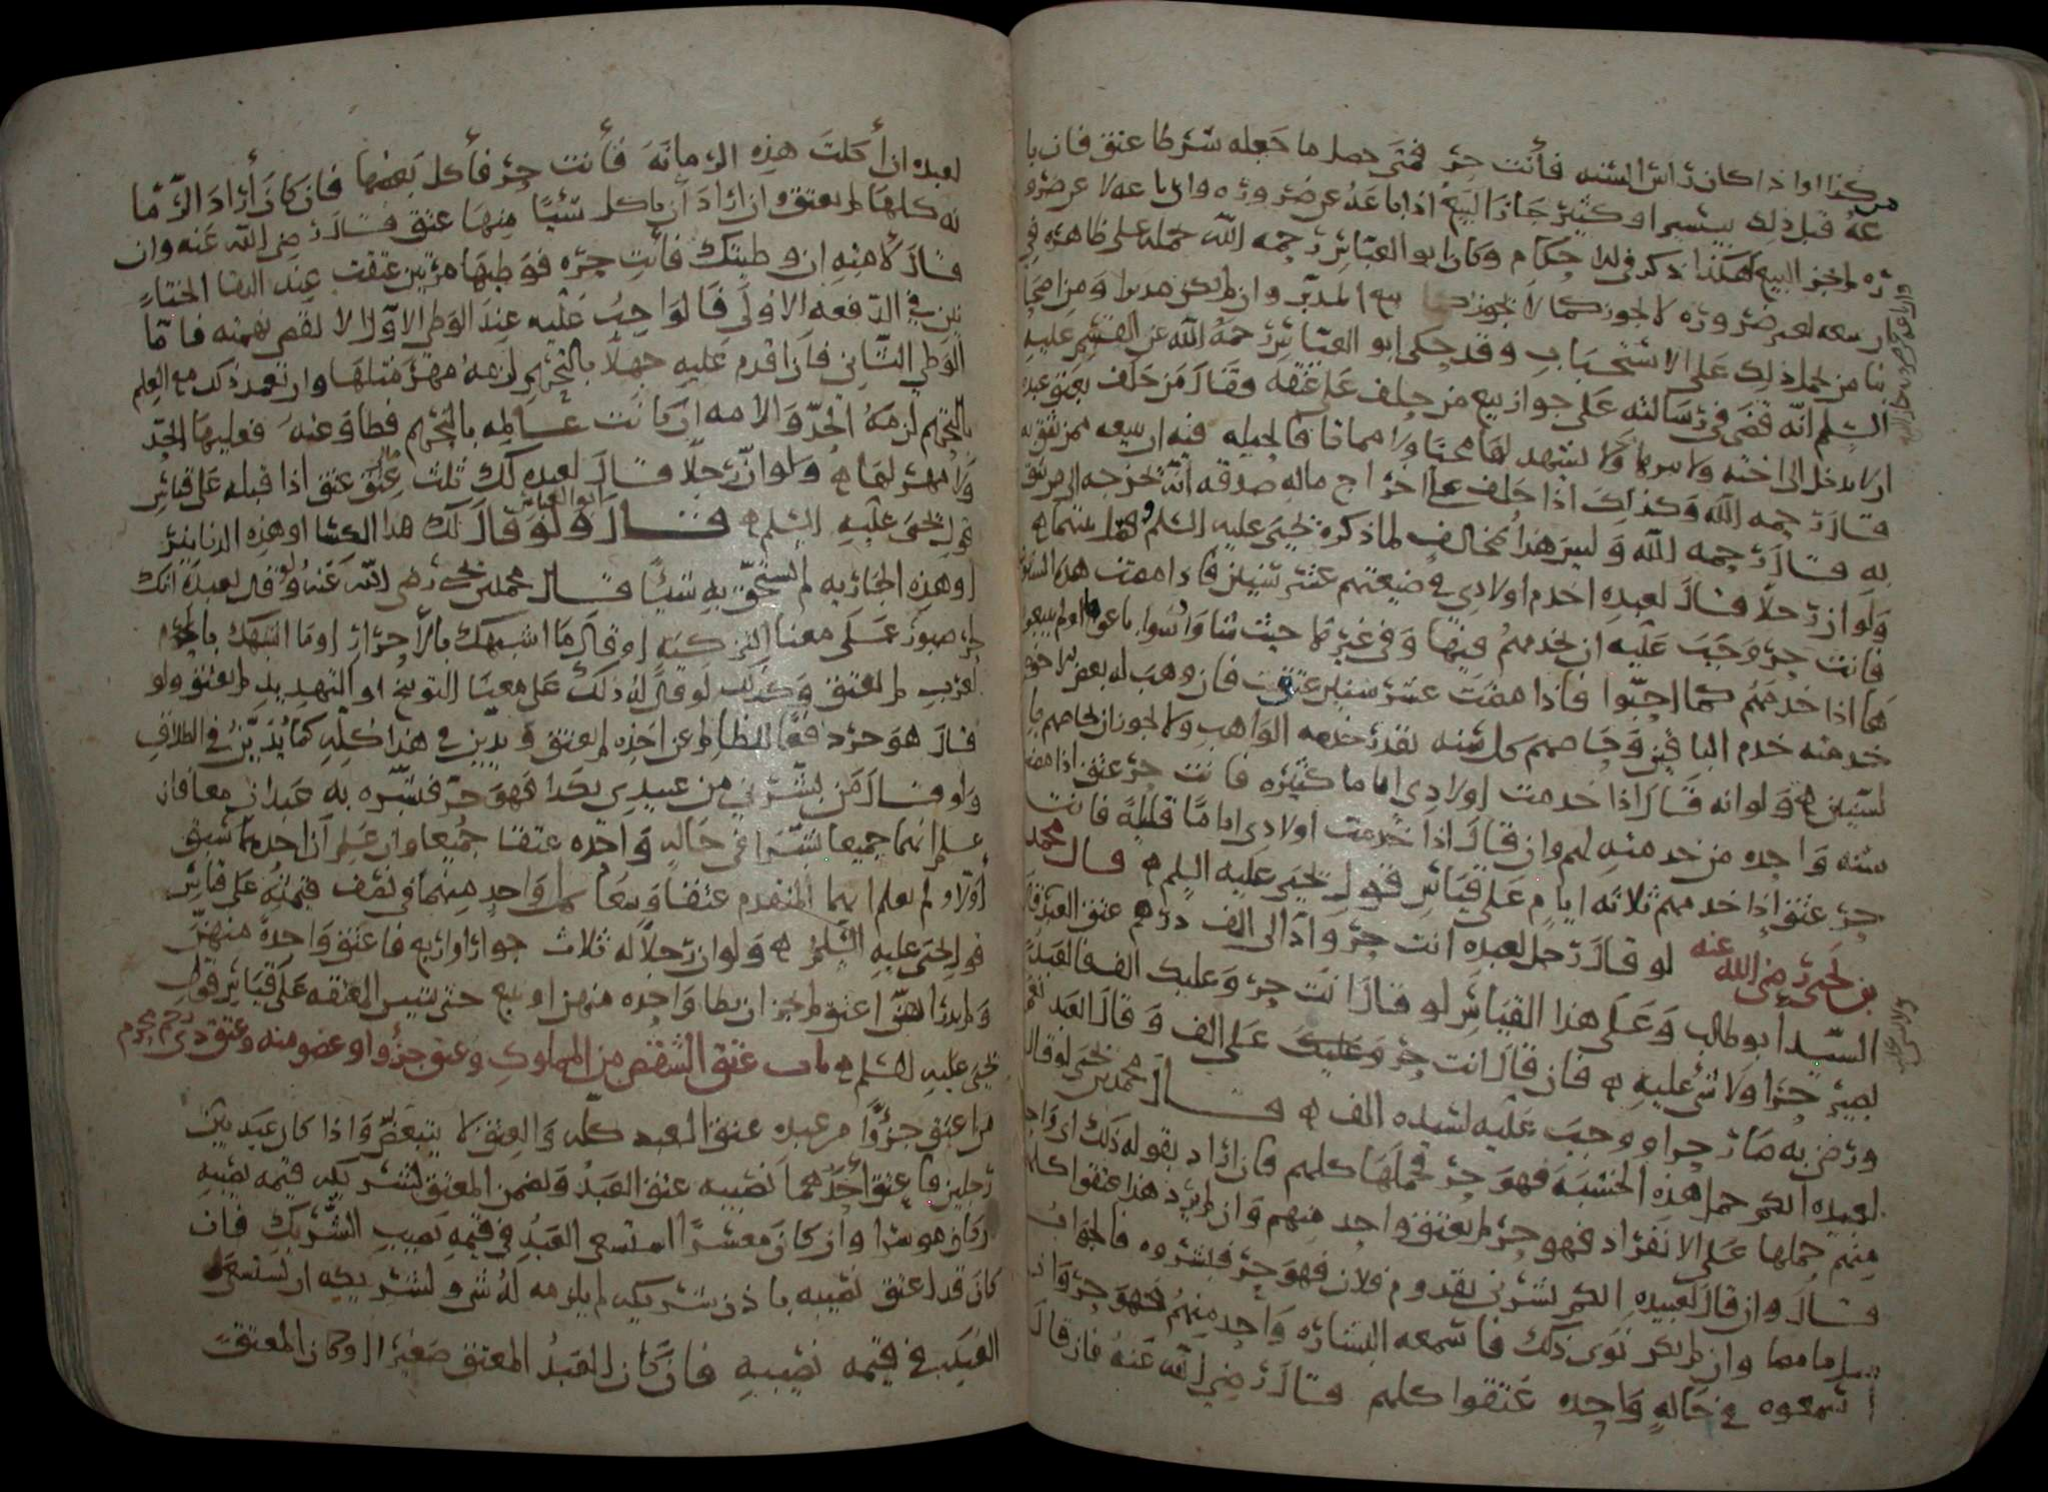 من كذا او اذا كان راس السنه فأنت حر فمتى حصل ما جعله شرطا عتق فان با
عه قبل ذلك بيسير او كثير جاز البيع اذا باعه عن ضروره وان باعه لا عن ضرو
ره لم يجز البيع هكذا ذكر في الاحكام وكان ابو العباس رحمه الله حمله على ظاهره في
ان بيعه لغير ضروره لا يجوز كما لا يجوز بيع المدبر وان لم يكن مدبرا ومن اصحا
بنا من يحمل ذلك على الاستحباب وقد حكى ابو العباس رحمه الله عن القسم عليه
السلم انه قضى في رسالته على جواز بيع من حلف على عتقه فقال من حلف بعتق عبده
ان لا يدخل الى اخته ولا يبرها ولا يشهد لها محيا ولا مماتا فالحيله فيه ان يبيعه ممن يثق به
قال رحمه الله وكذلك اذا حلف على اخراج ماله صدقه انه يخرجه الى من يثق
به قال رحمه الله وليس هذا بمخالف لما ذكره يحيى عليه السلم
ولو ان رجلا قال لعبده اخدم اولادي في ضيعتهم عشر سنين فاذا مضت هذه السنون
فانت حر وجب عليه ان يخدمهم فيها وفي غيرها حيث شاوا سوا باعوها او لم يبيعو
ها اذا خدمهم كما احبوا فاذا مضت عشر سنين عتق فان وهب له بعض الاخوه
خدمته خدم الباقين وخاصهم كل سنه بقدر حصه الواهب ولا يجوز ان يخاصهم با
لسنين ولو انه قال اذا خدمت اولادي اياما كثيره فانت حر عتق اذا مضت
سنه واحده من خدمته لهم وان قال اذا خدمت اولادي اياما قليله فانت
حر عتق اذا خدمهم ثلاثه ايام على قياس قول يحيى عليه السلم قال محمد
بن يحيى رضي الله عنه لو قال رجل لعبده انت حر واد الي الف درهم عتق العبد قال
السيد ابو طالب وعلى هذا القياس لو قال انت حر وعليك الف فالعبد
يصير حرا ولا شي عليه فان قال انت حر وعليك على الف وقال العبد نعم
ورضي به صار حرا ووجب عليه لسيده الف قال محمد بن يحيى لو قال
لعبيده ايكم حمل هذه الخشبه فهو حر فحملها كلهم فان اراد بقوله ذلك اي واحد
منهم حملها على الانفراد فهو حر لم يعتق واحد منهم وان لم يرد هذا عتقوا كلهم
قال وان قال لعبيده ايكم بشرني بقدوم فلان فهو حر فبشروه فالجواب
وان لم يكن نوى ذلك فاسمعه البشاره واحد منهم فهو حر وان
اسمعوه في حاله واحده عتقوا كلهم قال رضي الله عنه فان قال
لعبده ان أكلت هذه الرمانه فأنت حر فأكل بعضها فان كان أراد الرما
نه كلها لم يعتق وان اراد ان ياكل شيئا منها عتق قال رضي الله عنه وان
قال لأمته ان وطيتك فأنت حره فوطيها مرتين عتقت عند التقا الختا
نين في الدفعه الاولى فالواجب عليه عند الوطي الاول الا يقيم فاما
الوطي الثاني فان اقدم عليه جهلا بالتحريم لزمه مهر مثلها وان تعمد ذلك مع العلم
بالتحريم لزمه الحد والامه ان كانت عالمه بالتحريم فطاوعته فعليها الحد
ولا مهر لها ولو ان رجلا قال لعبده لك ثلث مالي عتق اذا قبله على قياس
قول يحيى عليه السلم قال ابو العباس ولو قال لك هذا الكسا او هذه الدنانير
او هذه الجاريه لم يستحق به شيئا قال محمد بن يحيى رضي الله عنه ولو قال لعبده انك
لحر صبور على معنا التزكيه او قال ما اشبهك بالأحرار او ما اشبهك باحرار
العرب لم يعتق وكذلك لو قال له ذلك على معنا التوبيخ او التهديد لم يعتق ولو
قال هو حر دفعا لظالم عن اخذه لم يعتق ويدين في هذا كله كما يدين في الطلاق
ولو قال من بشرني من عبيدي بكذا فهو حر فبشره به عبدان معا فان
علم انهما جميعا بشرا في حاله واحده عتقا جميعا وان علم أن احدهما سبق
أولا ولم يعلم ايهما المتقدم عتقا وسعا كل واحد منهما في نصف قيمته على قياس
قول يحيى عليه السلم ولو ان رجلا له ثلاث جوار او اربع فاعتق واحدة منهن
ولم يدر ايهن اعتق لم يجز ان يطا واحده منهن او يبيع حتى يتبين المعتقه على قياس قول
يحيى عليه السلم باب عتق الشقص من المملوك وعتق جزؤ او عضو منه وعتق ذي رحم محرم
من اعتق جزؤا من عبده عتق العبد كله والعتق لا يتبعض واذا كان عبد بين
رجلين فاعتق أحدهما نصيبه عتق العبد وضمن المعتق لشريكه قيمه نصيبه
ان كان موسرا وان كان معسرا استسعى العبد في قيمه نصيب الشريك فان
كان قد اعتق نصيبه باذن شريكه لم يلزمه له شي ولشريكه ان يستسعى
العبد في قيمه نصيبه فان كان العبد المعتق صغيرا وكان المعتق